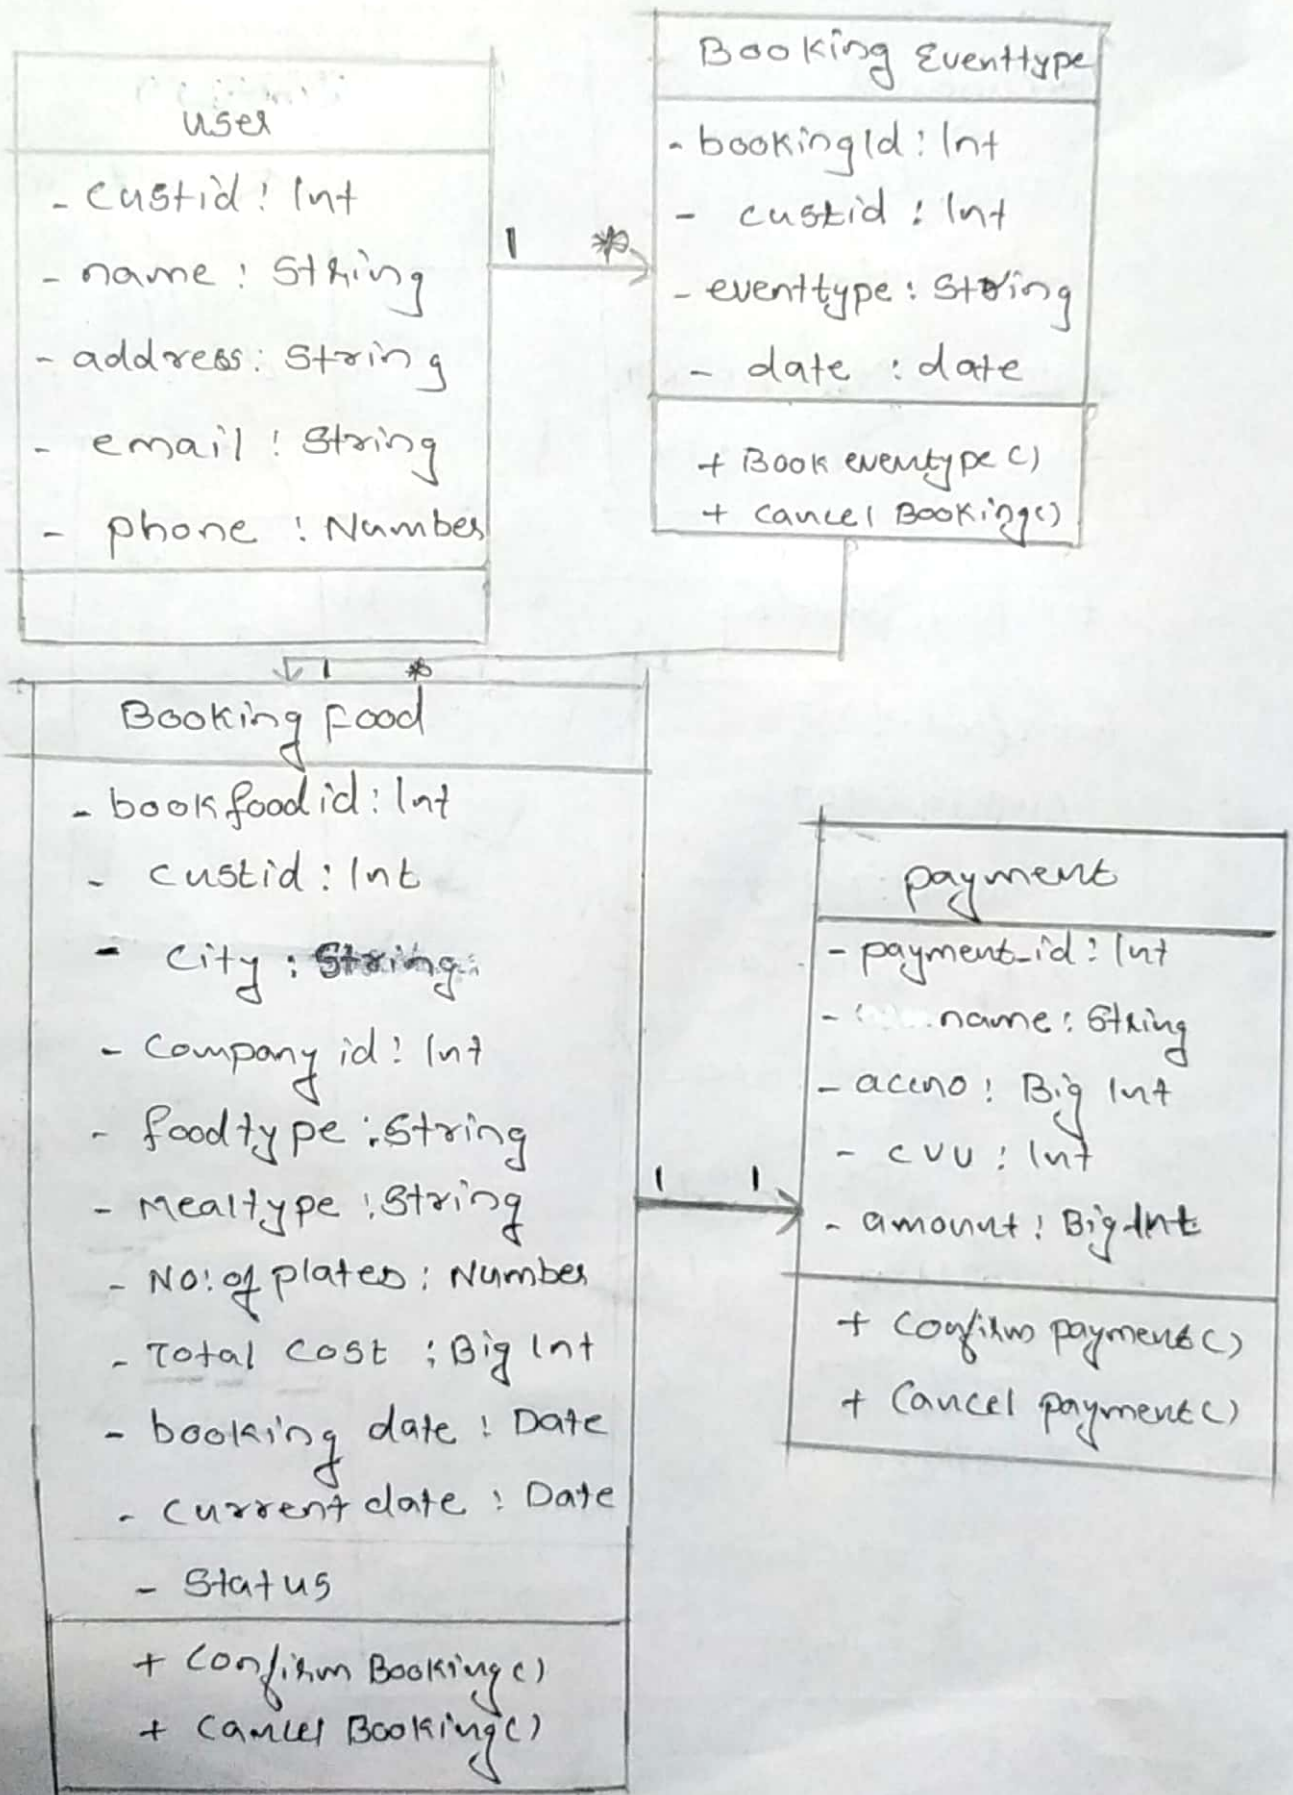 user
- custid : Int
- name : String
- address : String
- email : String
- phone : Number
1 *
Booking Eventtype
- bookingId : Int
- custid : Int
- eventtype : String
- date : date
+ Book eventype ()
+ Cancel Booking()
1 *
Booking Food
- bookfoodid : Int
- custid : Int
- City : String
- Company id : Int
- foodtype : String
- Mealtype : String
- No: of plates : Number
- Total Cost : Big Int
- booking date : Date
- Current date : Date
- Status
+ Confirm Booking()
+ Cancel Booking()
1 1
payment
- payment-id : Int
- name : String
- accno : Big Int
- cvv : Int
- amount : Big Int
+ Confirm payment()
+ Cancel payment()